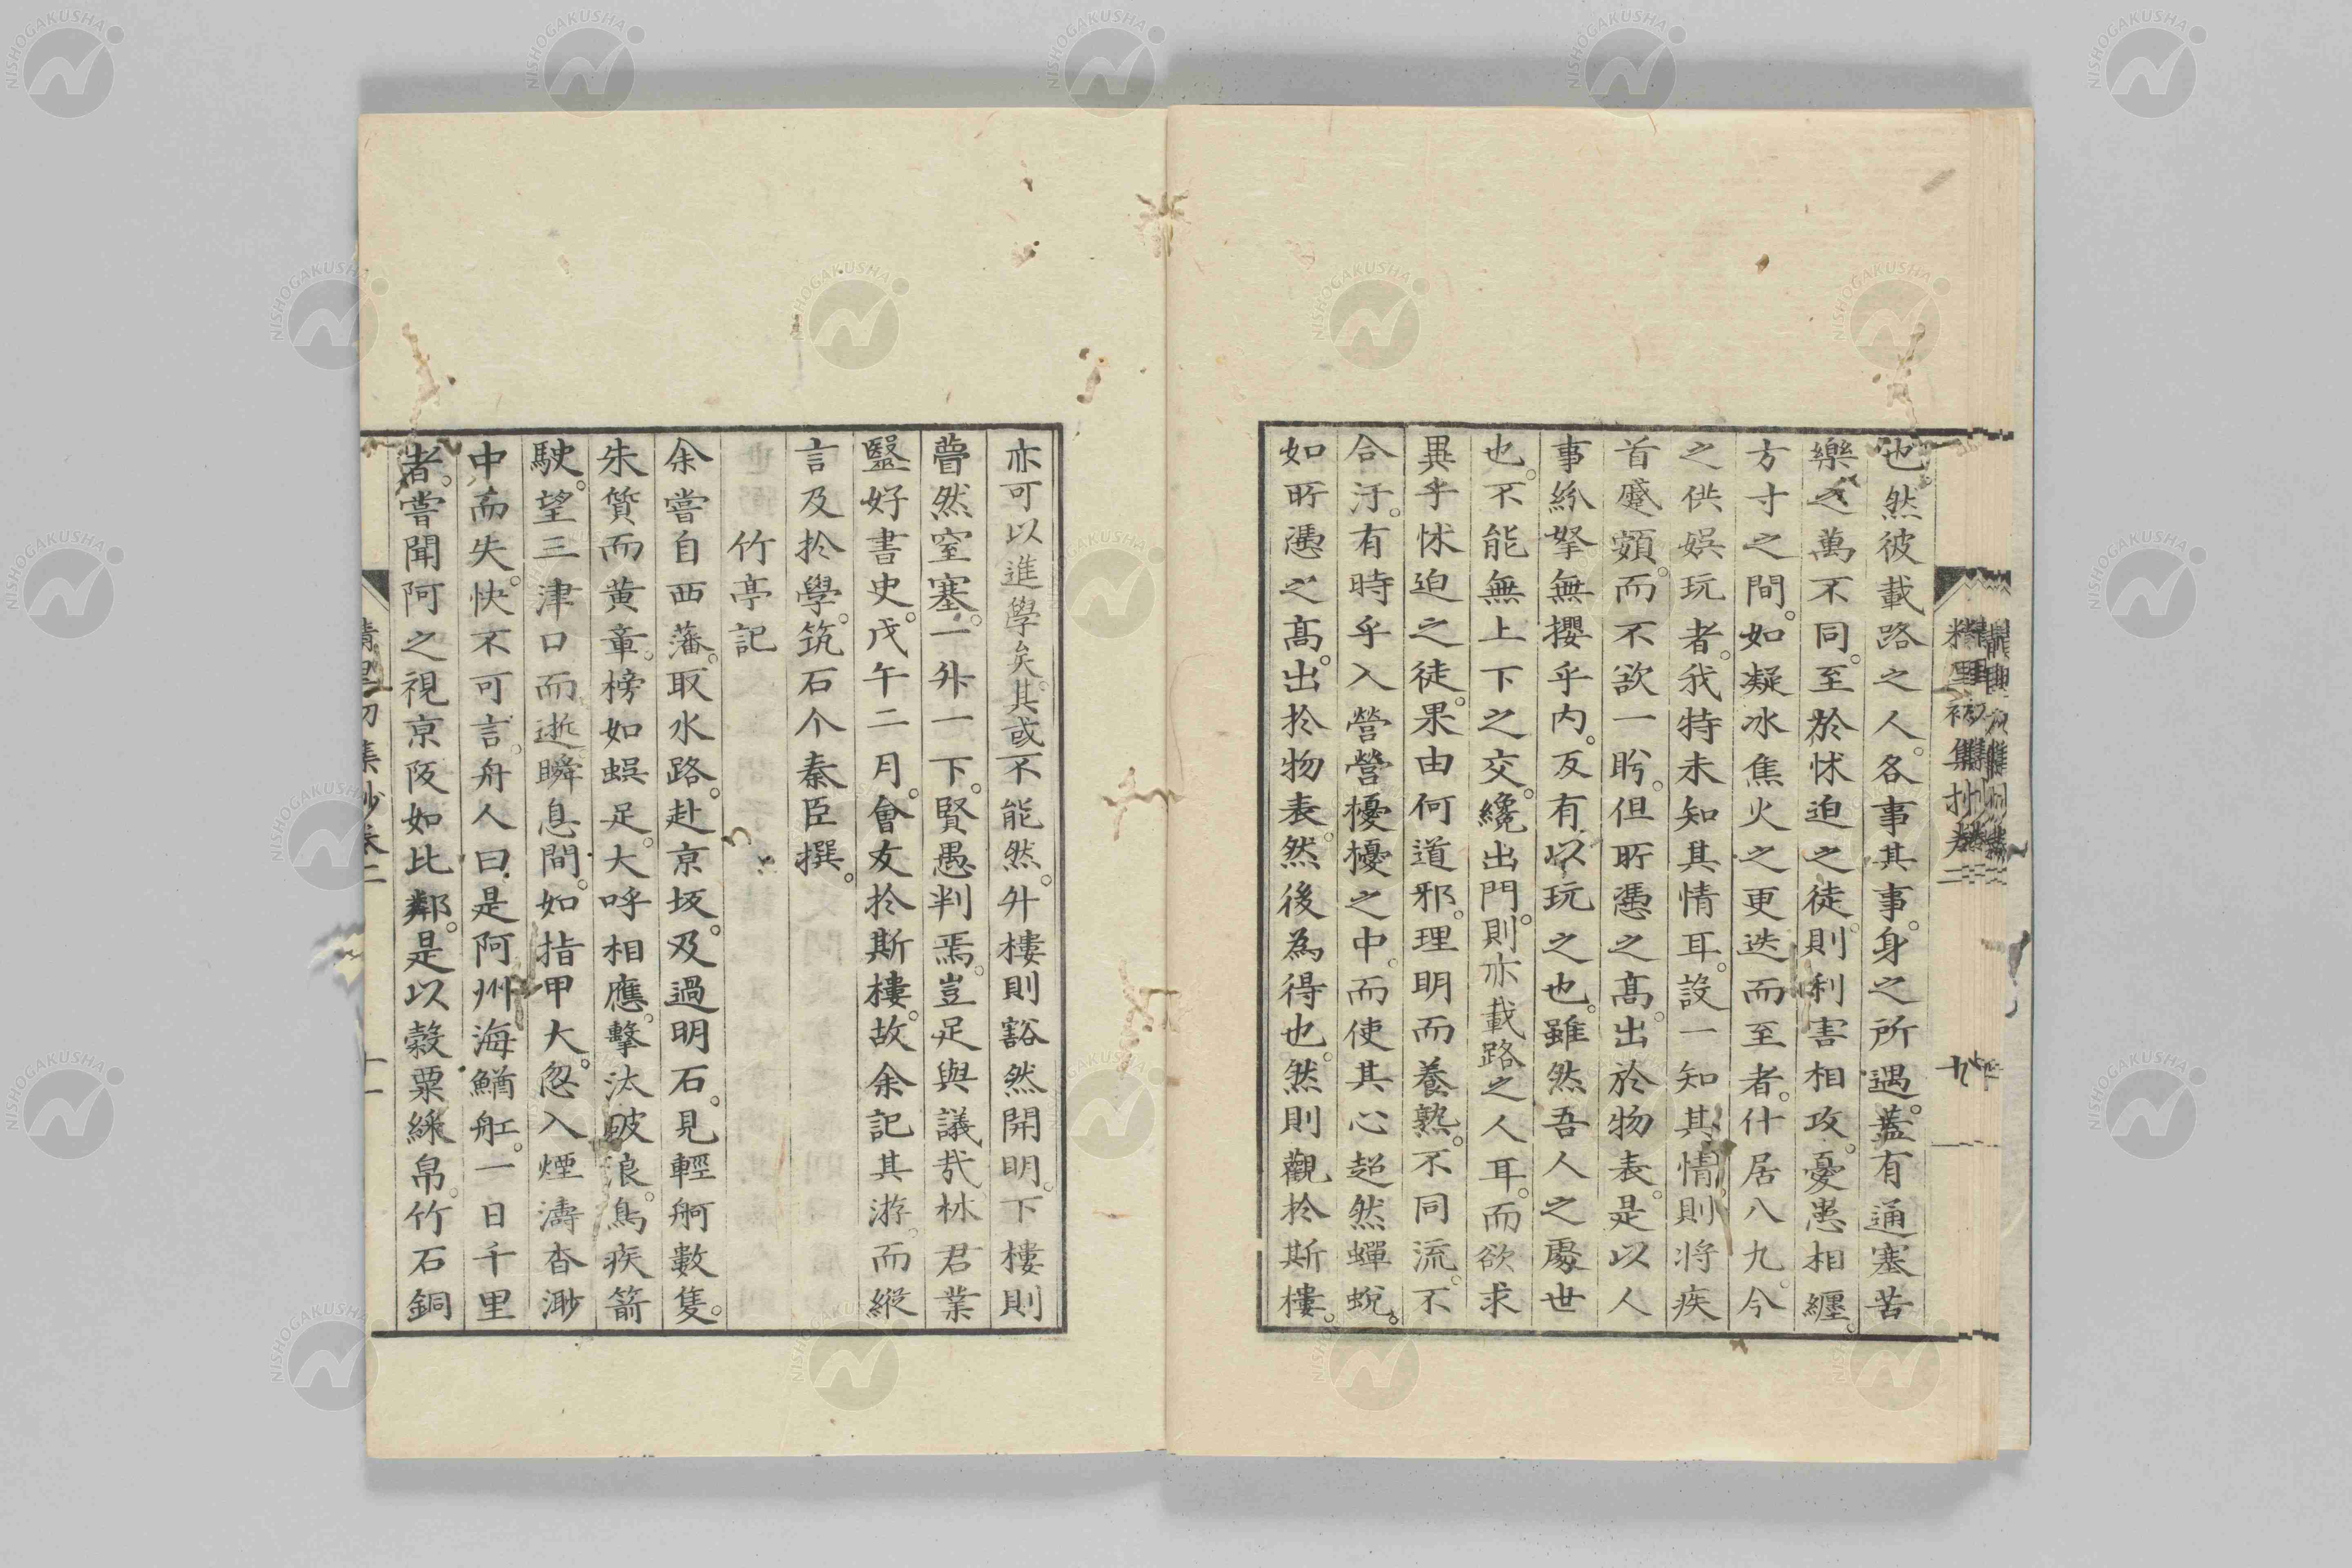 也然彼載路之人。各事其事。身之所遇。蓋有通塞苦
樂之萬不同。至於怵迫之徒。則利害相攻。憂患相纏。
方寸之間。如凝冰焦火之更迭而至者。什居八九。今
之供娯玩者。我特未知其情耳。設一知其情則将疾
首蹙頞。而不欲一眄。但所憑之髙。出於物表。是以人
事紛拏無攖乎内。反有以玩之也。雖然吾人之處世
也。不能無上下之交。纔出門。則亦載路之人耳。而欲求
異乎怵迫之徒。果由何道邪。理明而養熟。不同流。不
合汙。有時乎入營營擾擾之中。而使其心超然蟬蛻。
如所憑之髙。出於物表。然後為得也。然則觀於斯樓。
亦可以進學矣。其或不能然。升樓則豁然開明。下樓則
瞢然窒塞。一升一下。賢愚判焉。豈足與議哉。林君業
毉好書史。戊午二月。會友於斯樓。故余記其游。而縱
言及於學。筑石个秦臣撰。
竹亭記
余嘗自西藩。取水路。赴京坂。及過明石。見輕舸數隻。
朱質而黄章。榜如蜈足。大呼相應。擊汰破浪。鳥疾箭
駛。望三津口而逝。瞬息間。如指甲大。忽入煙濤杳渺
中而失。快不可言。舟人曰。是阿州海鰌舡。一日千里
者。嘗聞阿之視京阪如比鄰。是以穀粟綵帛。竹石銅
精里初集抄卷二
九
精里初集抄卷二
十一
NISHOGAKUSHA